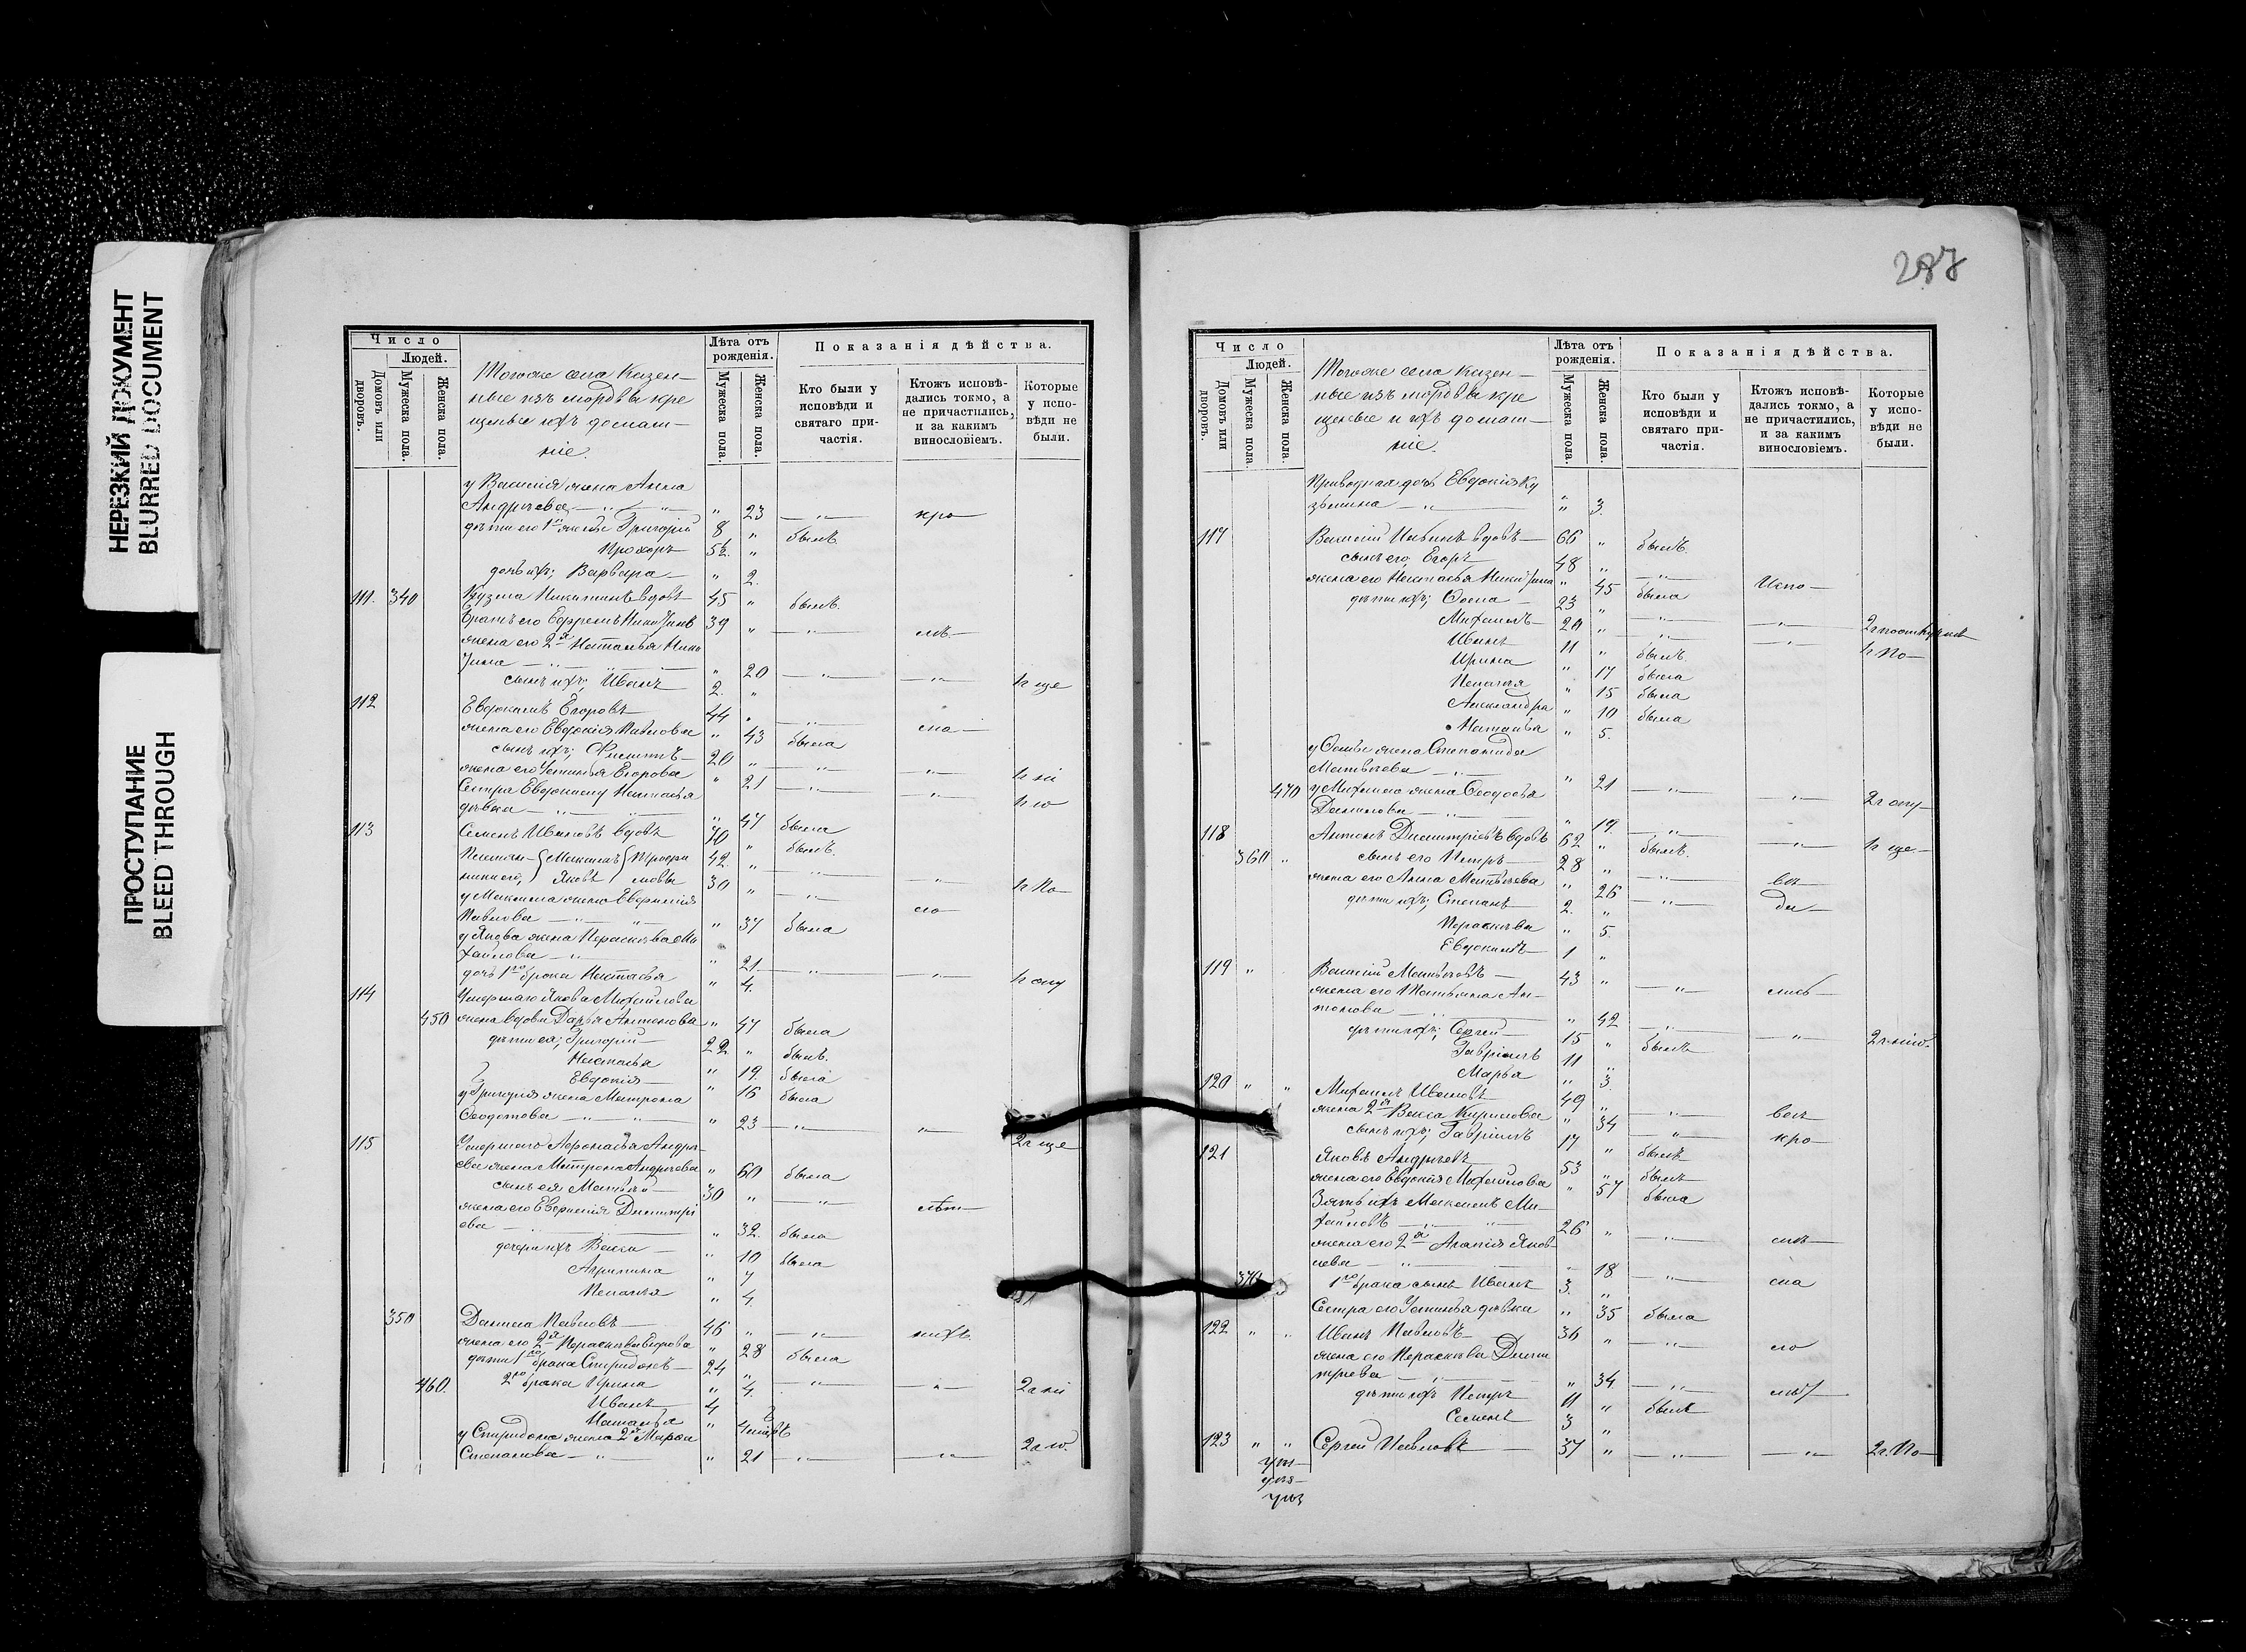 НЕРЕЗКИЙ ДОКУМЕНТ
BLURRED DOCUMENT
ПРОСТУПАНИЕ
BLEED THROUGH
Число
Людей.
Домовъ или дворовъ.
Мужеска пола.
Женска пола.
Тогоже села Казен-
ные изъ мордвы кре
щеные ихъ домаш-
ніе.
Лѣта отъ рожденія.
Мужеска пола.
Женска пола.
Показанія дѣйства.
Кто были у исповѣди и святаго при-частія.
Ктожъ исповѣ-дались токмо, а не причастились, и за какимъ винословіемъ.
Которые у испо-вѣди не были.
у Василія жена Анна
Андреева " 23 " кро
дѣти его 1й жены Григорій 8 " былъ
Прохоръ 5½ "
дочь ихъ; Варвара " 2.
111. 340 Кузма Никитинъ вдовъ 45 " былъ.
Братъ его Ефремъ Никитинъ 39 " "
жена его 2я Наталья Ники
тина " 20 " "
сынъ ихъ; Иванъ 2. "
112 Евдокимъ Егоровъ 44 " "
жена его Евдокія Павловна " 43 была
сынъ ихъ; Филиппъ 20 " " "
жена его Устинья Егорова " 21 " "
Сестра Евдокиму Настасья
дѣвка " 47 была
113 Семенъ Ивановъ вдовъ 70 " былъ.
Племян- Максимъ Трофи 42 " "
ники его, Яковъ мовы 30 " "
у Максима жена Евгенія
Павлова " 37 была
у Якова жена Парасковья Ми
хайлова " 21 " "
дочь 1го брака Настасья " 4.
114 Умершаго Якова Михайлова
450 жена вдова Дарья Антонова " 47 была
дѣти ея; Григорій 22 " былъ.
Настасья " 19. была
Евдокія " 16 была
у Григорія жена Матрона
Ѳеодотова " 23 " " 2й ще
115 Умершаго Афонасья Андре-
ева жена Матрона Андреева " 60 была
сынъ ея Матвѣй 30 " "
жена его Евгенія Дмитрі
ева " 32. была
дочери ихъ Васса " 10 была
Агрипина " 7
Пелагея " 4.
350 Данила Павловъ 46 " "
жена его 2я Парасковья Егорова " 28 была
дѣти 1го брака Спиридонъ 24 " " "
460. 2го брака Ирина " 4.
Иванъ 4
Наталья "
у Спиридона жена 2я Марѳа
Степанова " 21 " "
287
Число
Людей.
Домовъ или дворовъ.
Мужеска пола.
Женска пола.
Тогоже села Казен-
ные изъ мордвы кре
щеные и ихъ домаш-
ніе.
Лѣта отъ рожденія.
Мужеска пола.
Женска пола.
Показанія дѣйства.
Кто были у исповѣди и святаго при-частія.
Ктожъ исповѣ-дались токмо, а не причастились, и за какимъ винословіемъ.
Которые у испо-вѣди не были.
Приводная дочь Евдокія Ку
зьмина " 3.
117 Василій вдовъ 66 " былъ.
сынъ его, Егоръ 48 " "
жена его Настасья Никитина " 45 была
дѣти ихъ; Ѳома 23 " " "
Михаилъ 20 " " "
Иванъ 11 " былъ.
Ирина " 17 была
Пелагея " 15 была
Александра " 10 была
Наталья " 5.
у Ѳомы жена Степанида
Матвѣева " 21 " "
470 у Михаила жена Ѳеодосья
Данилова " 19. " "
118 Антонъ Димитріевъ вдовъ 62 " былъ.
360 " сынъ его Петръ 28 " "
жена его Анна Матвѣева " 26 "
дѣти ихъ; Степанъ 2. "
Парасковья " 5.
Евдокимъ 1 "
119 " Василій Матвѣевъ 43 " "
жена его Татьяна Ан-
тонова " 42 " "
дѣти ихъ; Сергѣй 15 " былъ
Гавріилъ 11 "
Марья " 3.
120 " " Михаилъ Ивановъ 49 " "
жена 2я Васса Кирилова " 34 " кро
сынъ ихъ; Гавріилъ 17 " былъ
121 Яковъ Андреевъ 53 " былъ
жена его Евдокія Михайлова " 57 была
Зять ихъ Максимъ Ми-
хайловъ 26 " "
жена его 2я Агапія Яков-
лева " 18 "
370 1го брака сынъ Иванъ 3. "
Сестра его Устинья дѣвка " 35 была
122 " " Иванъ Павловъ 36 " "
жена его Парасковья Дми
тріева " 34. "
дѣти ихъ Петръ 11 " былъ
Семенъ 3 "
123 " " Сергѣй Павловъ 37 " " "